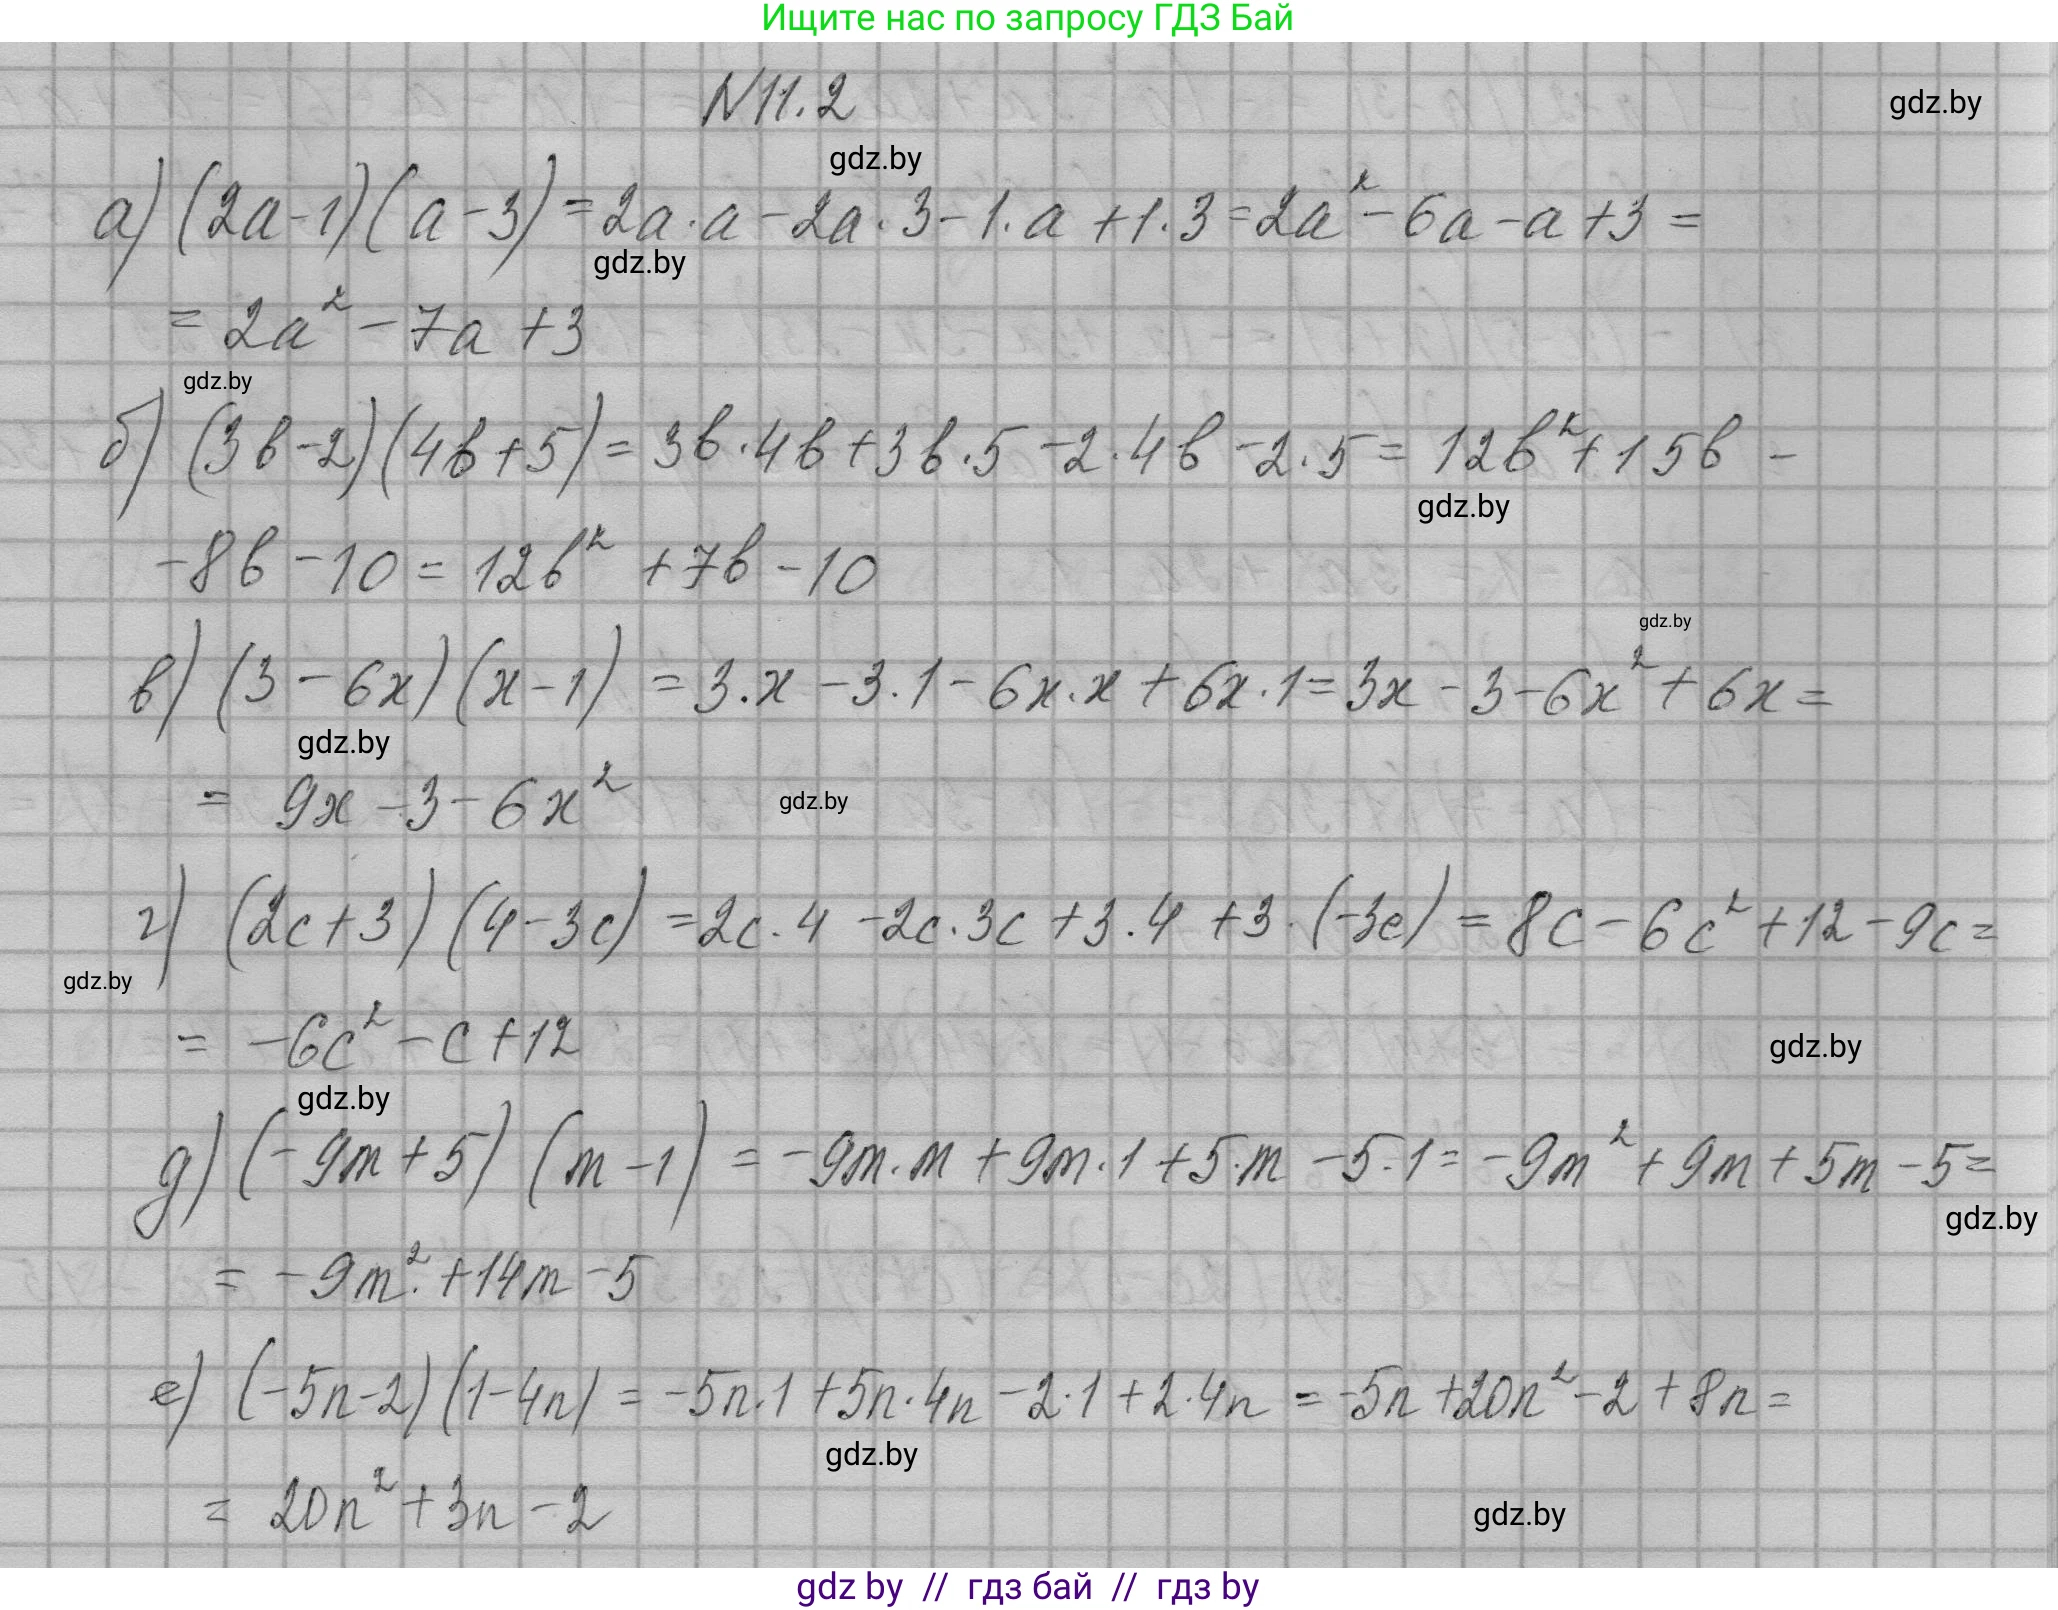 Ищите нас по запросу ГДЗ Бай
N11.2
gdz.by
gdz.by
а) (2a-1)(a-3)=2a·a-2a·3-1·a+1·3=2a²-6a-a+3=
gdz.by
=2a²-7a+3
gdz.by
б) (3b-2)(4b+5)=3b·4b+3b·5-2·4b-2·5=12b²+15b-
gdz.by
-8b-10=12b²+7b-10
gdz.by
в) (3-6x)(x-1)=3·x-3·1-6x·x+6x·1=3x-3-6x²+6x=
gdz.by
=9x-3-6x²
gdz.by
г) (2c+3)(4-3c)=2c·4-2c·3c+3·4+3·(-3c)=8c-6c²+12-9c=
gdz.by
=-6c²-c+12
gdz.by
gdz.by
д) (-9m+5)(m-1)=-9m·m+9m·1+5·m-5·1=-9m²+9m+5m-5=
gdz.by
=-9m²+14m-5
е) (-5n-2)(1-4n)=-5n·1+5n·4n-2·1+2·4n=-5n+20n²-2+8n=
gdz.by
=20n²+3n-2
gdz.by
gdz by // гдз бай // гдз by